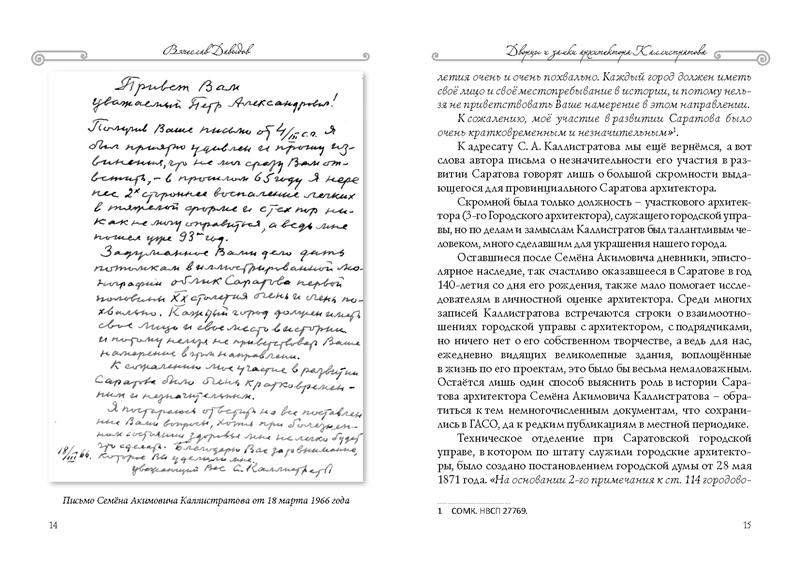 Вячеслав Давыдов
Привет Вам
уважаемый Петр Александрович!
Получив Ваше письмо от 4/III с.г. Я
был приятно удивлен и прошу из-
винения, что не мог сразу Вам от-
ветить, - в прошлом 65 году я пере
нес 2х стороннее воспаление легких
в тяжелой форме и с тех пор ни-
как не могу оправиться, а ведь мне
пошел уже 93-й год.
Задуманное Вами дело дать
потомкам в иллюстрированной мо-
нографии облик Саратова первой
половины XX столетия очень и очень по-
хвально. Каждый город должен иметь
свое лицо и свое место в истории
и потому нельзя не приветствовать Ваше
намерение в этом направлении.
К сожалению мое участие в развитии
Саратова было очень кратковремен-
ным и незначительным.
Я постараюсь ответить на все поставлен
ные Вами вопросы, хотя при болезнен-
ном состоянии здоровья мне не легко будет
это сделать. Благодарю Вас за внимание,
которое Вы уделили мне.
18/III 66.
уважающий Вас С. Каллистратов
Письмо Семёна Акимовича Каллистратова от 18 марта 1966 года
14
Дворцы и замки архитектора Каллистратова
летия очень и очень похвально. Каждый город должен иметь
своё лицо и своё местопребывание в истории, и потому нель-
зя не приветствовать Ваше намерение в этом направлении.
К сожалению, моё участие в развитии Саратова было
очень кратковременным и незначительным»¹.
К адресату С. А. Каллистратова мы ещё вернёмся, а вот
слова автора письма о незначительности его участия в раз-
витии Саратова говорят лишь о большой скромности выда-
ющегося для провинциального Саратова архитектора.
Скромной была только должность – участкового архитек-
тора (3-го Городского архитектора), служащего городской упра-
вы, но по делам и замыслам Каллистратов был талантливым че-
ловеком, много сделавшим для украшения нашего города.
Оставшиеся после Семёна Акимовича дневники, эписто-
лярное наследие, так счастливо оказавшееся в Саратове в год
140-летия со дня его рождения, также мало помогает иссле-
дователям в личностной оценке архитектора. Среди многих
записей Каллистратова встречаются строки о взаимоотно-
шениях городской управы с архитектором, с подрядчиками,
но ничего нет о его собственном творчестве, а ведь для нас,
ежедневно видящих великолепные здания, воплощённые
в жизнь по его проектам, это было бы весьма немаловажным.
Остаётся лишь один способ выяснить роль в истории Сара-
това архитектора Семёна Акимовича Каллистратова – обра-
титься к тем немногочисленным документам, что сохрани-
лись в ГАСО, да к редким публикациям в местной периодике.
Техническое отделение при Саратовской городской
управе, в котором по штату служили городские архитекто-
ры, было создано постановлением городской думы от 28 мая
1871 года. «На основании 2-го примечания к ст. 114 городово-
1 СОМК. НВСП 27769.
15